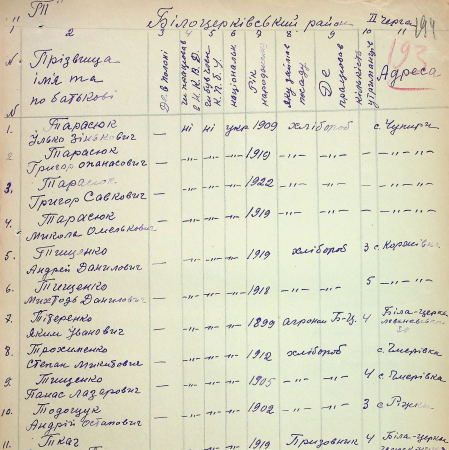 "ТІІ"
Білоцерківський район ІІ Черга
194
193
1 2 3 4 5 6 7 8 9 10 11
№ Прізвища ім'я та по батькові
Де в полоні
чи працював в Н.К.В.Д.
чи був член К.П.б.У.
національн.
Рік народження
яку займав посаду
Де працював
кількість утриманців
Адреса
1. Тарасюк
Улько Зінькович — ні ні укр 1909 хлібороб с. Чупири
2 Тарасюк
Григор Опанасович — -"- -"- -"- 1919 -"- -"- — -"- -"-
3. Тарасюк
Григор Савкович — -"- -"- -"- 1922 -"- -"- — -"- -"-
4. Тарасюк
Микола Омелькович — -"- -"- -"- 1919 -"- -"- — -"- -"-
5. Тищенко
Андрій Данилович — -"- -"- -"- 1919 хлібороб 3 с. Коржівка
6. Тищенко
Данилович — -"- -"- -"- 1918 -"- -"- 5 -"- -"-
7. Тізеренко
Яким Іванович — -"- -"- -"- 1899 агроном Б-Ц. 4 Біла-Церква
8. Трохименко
Степан Микитович — -"- -"- -"- 1912 хлібороб с. Чмирівка
9. Тищенко
Панас Лазарович — -"- -"- -"- 1905 -"- -"- 4 с. Чмирівка
10. Тодощук
Андрій Остапович — -"- -"- -"- 1902 -"- -"- 3 с.
11. Ткач
-"- -"- -"- 1919 Призовник 4 Біла-Церква